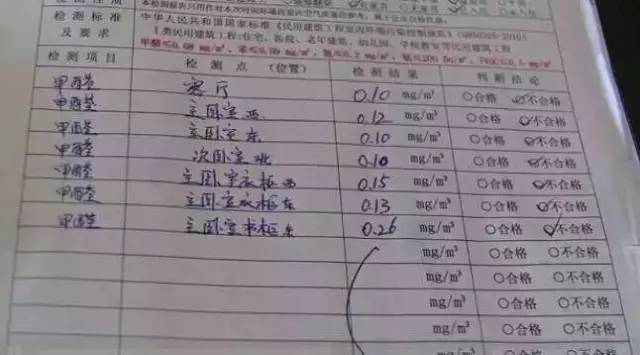 检测标准 中华人民共和国国家标准《民用建筑工程室内环境污染控制规范》(GB50325-2010)
及要求 Ⅰ类民用建筑工程:住宅、医院、老年建筑、幼儿园、学校教室等民用建筑工程
甲醛≤0.08 mg/m³, 苯≤0.09 mg/m³, 氨≤0.2 mg/m³,
检测项目 检测点(位置) 检测结果 判断结论
甲醛 客厅 0.10 mg/m³ ○合格 ☑不合格
甲醛 主卧室西 0.12 mg/m³ ○合格 ☑不合格
甲醛 主卧室东 0.10 mg/m³ ○合格 ☑不合格
甲醛 次卧室北 0.10 mg/m³ ○合格 ☑不合格
甲醛 主卧室衣柜西 0.15 mg/m³ ○合格 ☑不合格
甲醛 主卧室衣柜东 0.13 mg/m³ ○合格 ☑不合格
甲醛 主卧室书柜东 0.26 mg/m³ ○合格 ☑不合格
mg/m³ ○合格 ○不合格
mg/m³ ○合格 ○不合格
mg/m³ ○合格 ○不合格
mg/m³ ○合格 ○不合格
mg/m³ ○合格 ○不合格